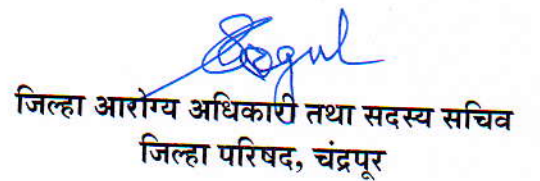 जिल्हा आरोग्य अधिकारी तथा सदस्य सचिव
जिल्हा परिषद, चंद्रपूर